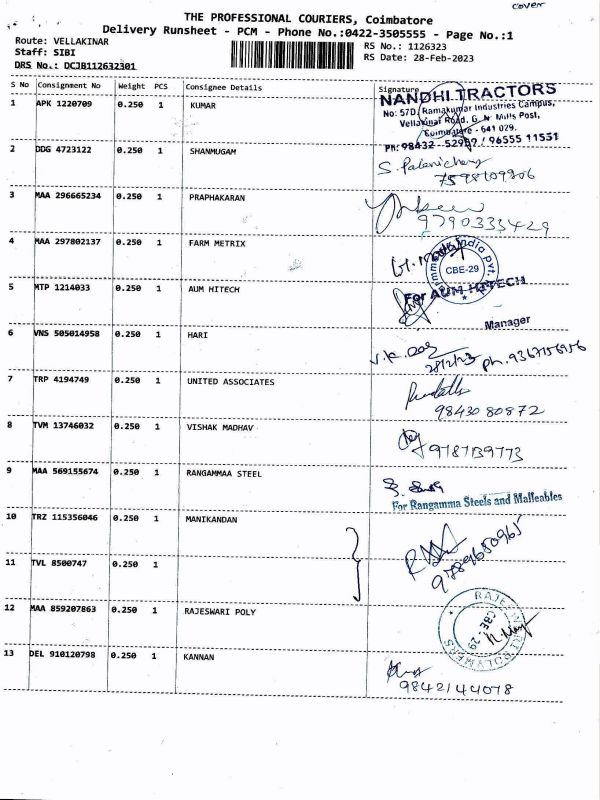 cover
THE PROFESSIONAL COURIERS, Coimbatore
Delivery Runsheet - PCM - Phone No.:0422-3505555 - Page No.:1
Route: VELLAKINAR
RS No.: 1126323
Staff: SIBI
RS Date: 28-Feb-2023
DRS No.: DCJB112632301
S No Consignment No Weight PCS Consignee Details Signature
1 APK 1220709 0.250 1 KUMAR
NANDHI TRACTORS
No: 57D, Ramakumar Industries Campus,
Vellakinar Road, G. N. Mills Post,
Coimbatore - 641 029.
Ph: 98432 - 52997 / 96555 11551
2 DDG 4723122 0.250 1 SHANMUGAM
3 MAA 296665234 0.250 1 PRAPHAKARAN
9790333429
4 MAA 297802137 0.250 1 FARM METRIX
India Pvt.
CBE-29
5 MTP 1214033 0.250 1 AUM HITECH
For AUM HITECH
Manager
6 VNS 505014958 0.250 1 HARI
28/2/23 Ph. 9367156956
7 TRP 4194749 0.250 1 UNITED ASSOCIATES
9843080872
8 TVM 13746032 0.250 1 VISHAK MADHAV
9787139773
9 MAA 569155674 0.250 1 RANGAMMAA STEEL
For Rangamma Steels and Malleables
10 TRZ 115356046 0.250 1 MANIKANDAN
9789680965
11 TVL 8500747 0.250 1
12 MAA 859207863 0.250 1 RAJESWARI POLY
RAJESWARI POLYMERS
CBE - 29
13 DEL 910120798 0.250 1 KANNAN
9842144078